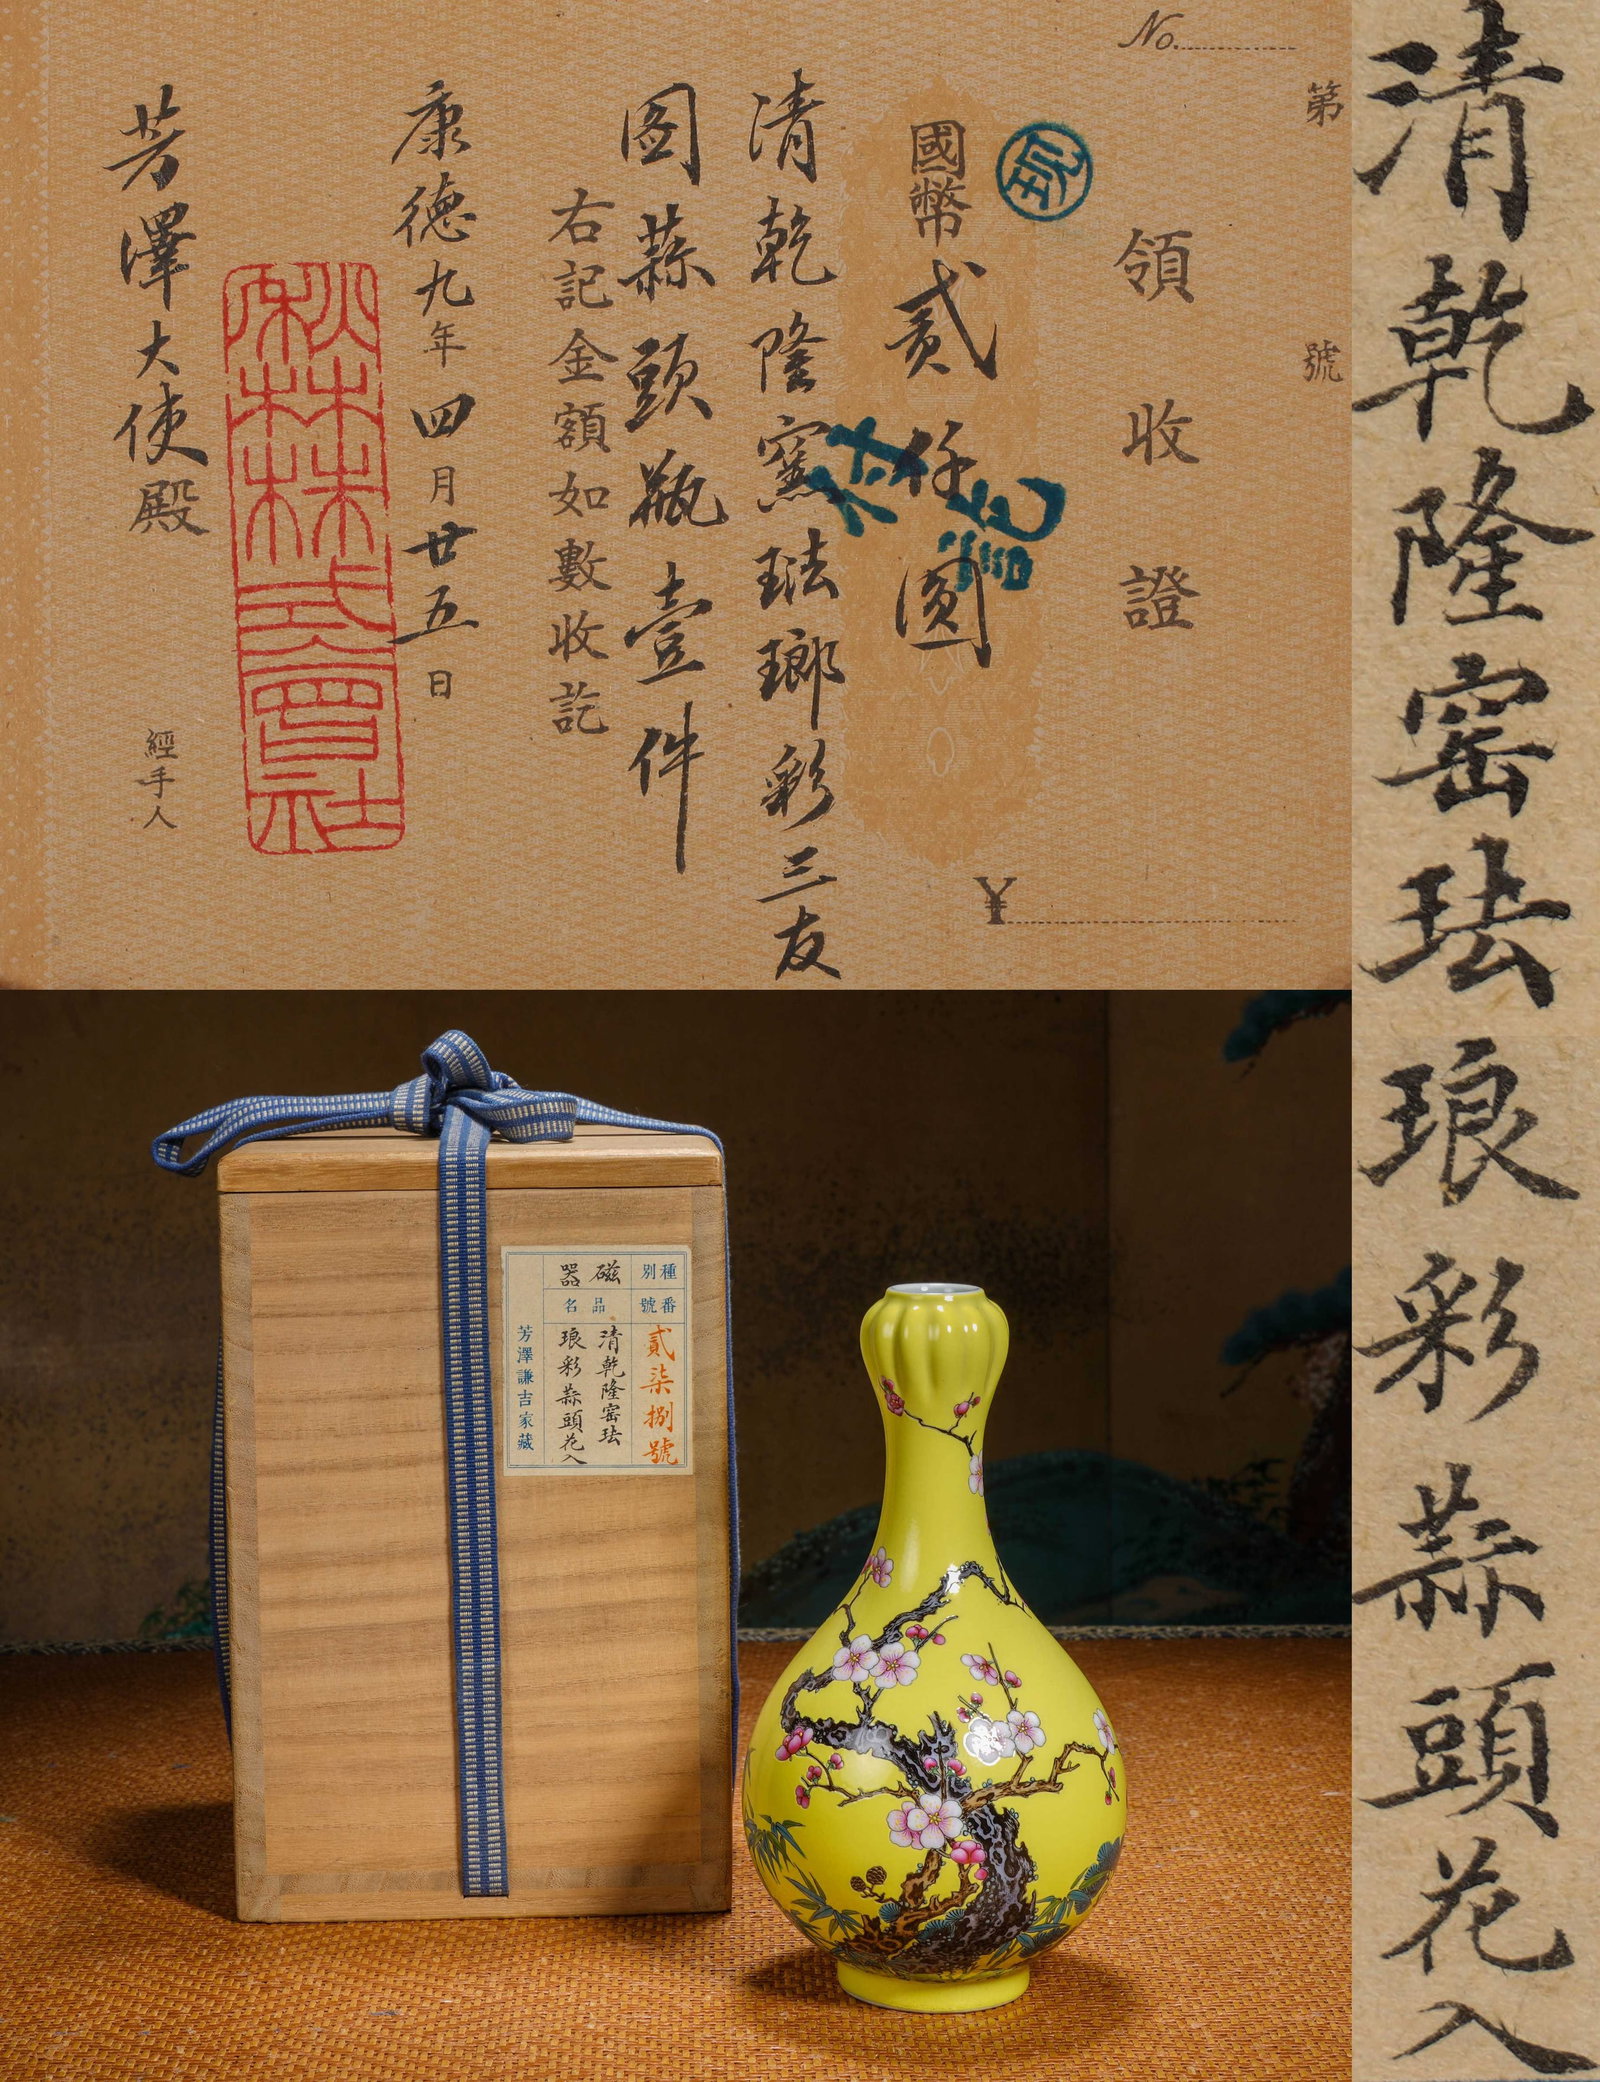 第 號
No.
領收證
國幣貳仟圓
¥
清乾隆窯琺瑯彩三友
图蒜頭瓶壹件
右記金額如數收訖
康德九年四月廿五日
秋林株式會社
芳澤大使殿
經手人
付訖
清乾隆窑珐琅彩蒜頭花入
種別
磁器
番號
品名
貳柒捌號
清乾隆窑珐
琅彩蒜頭花入
芳澤謙吉家藏